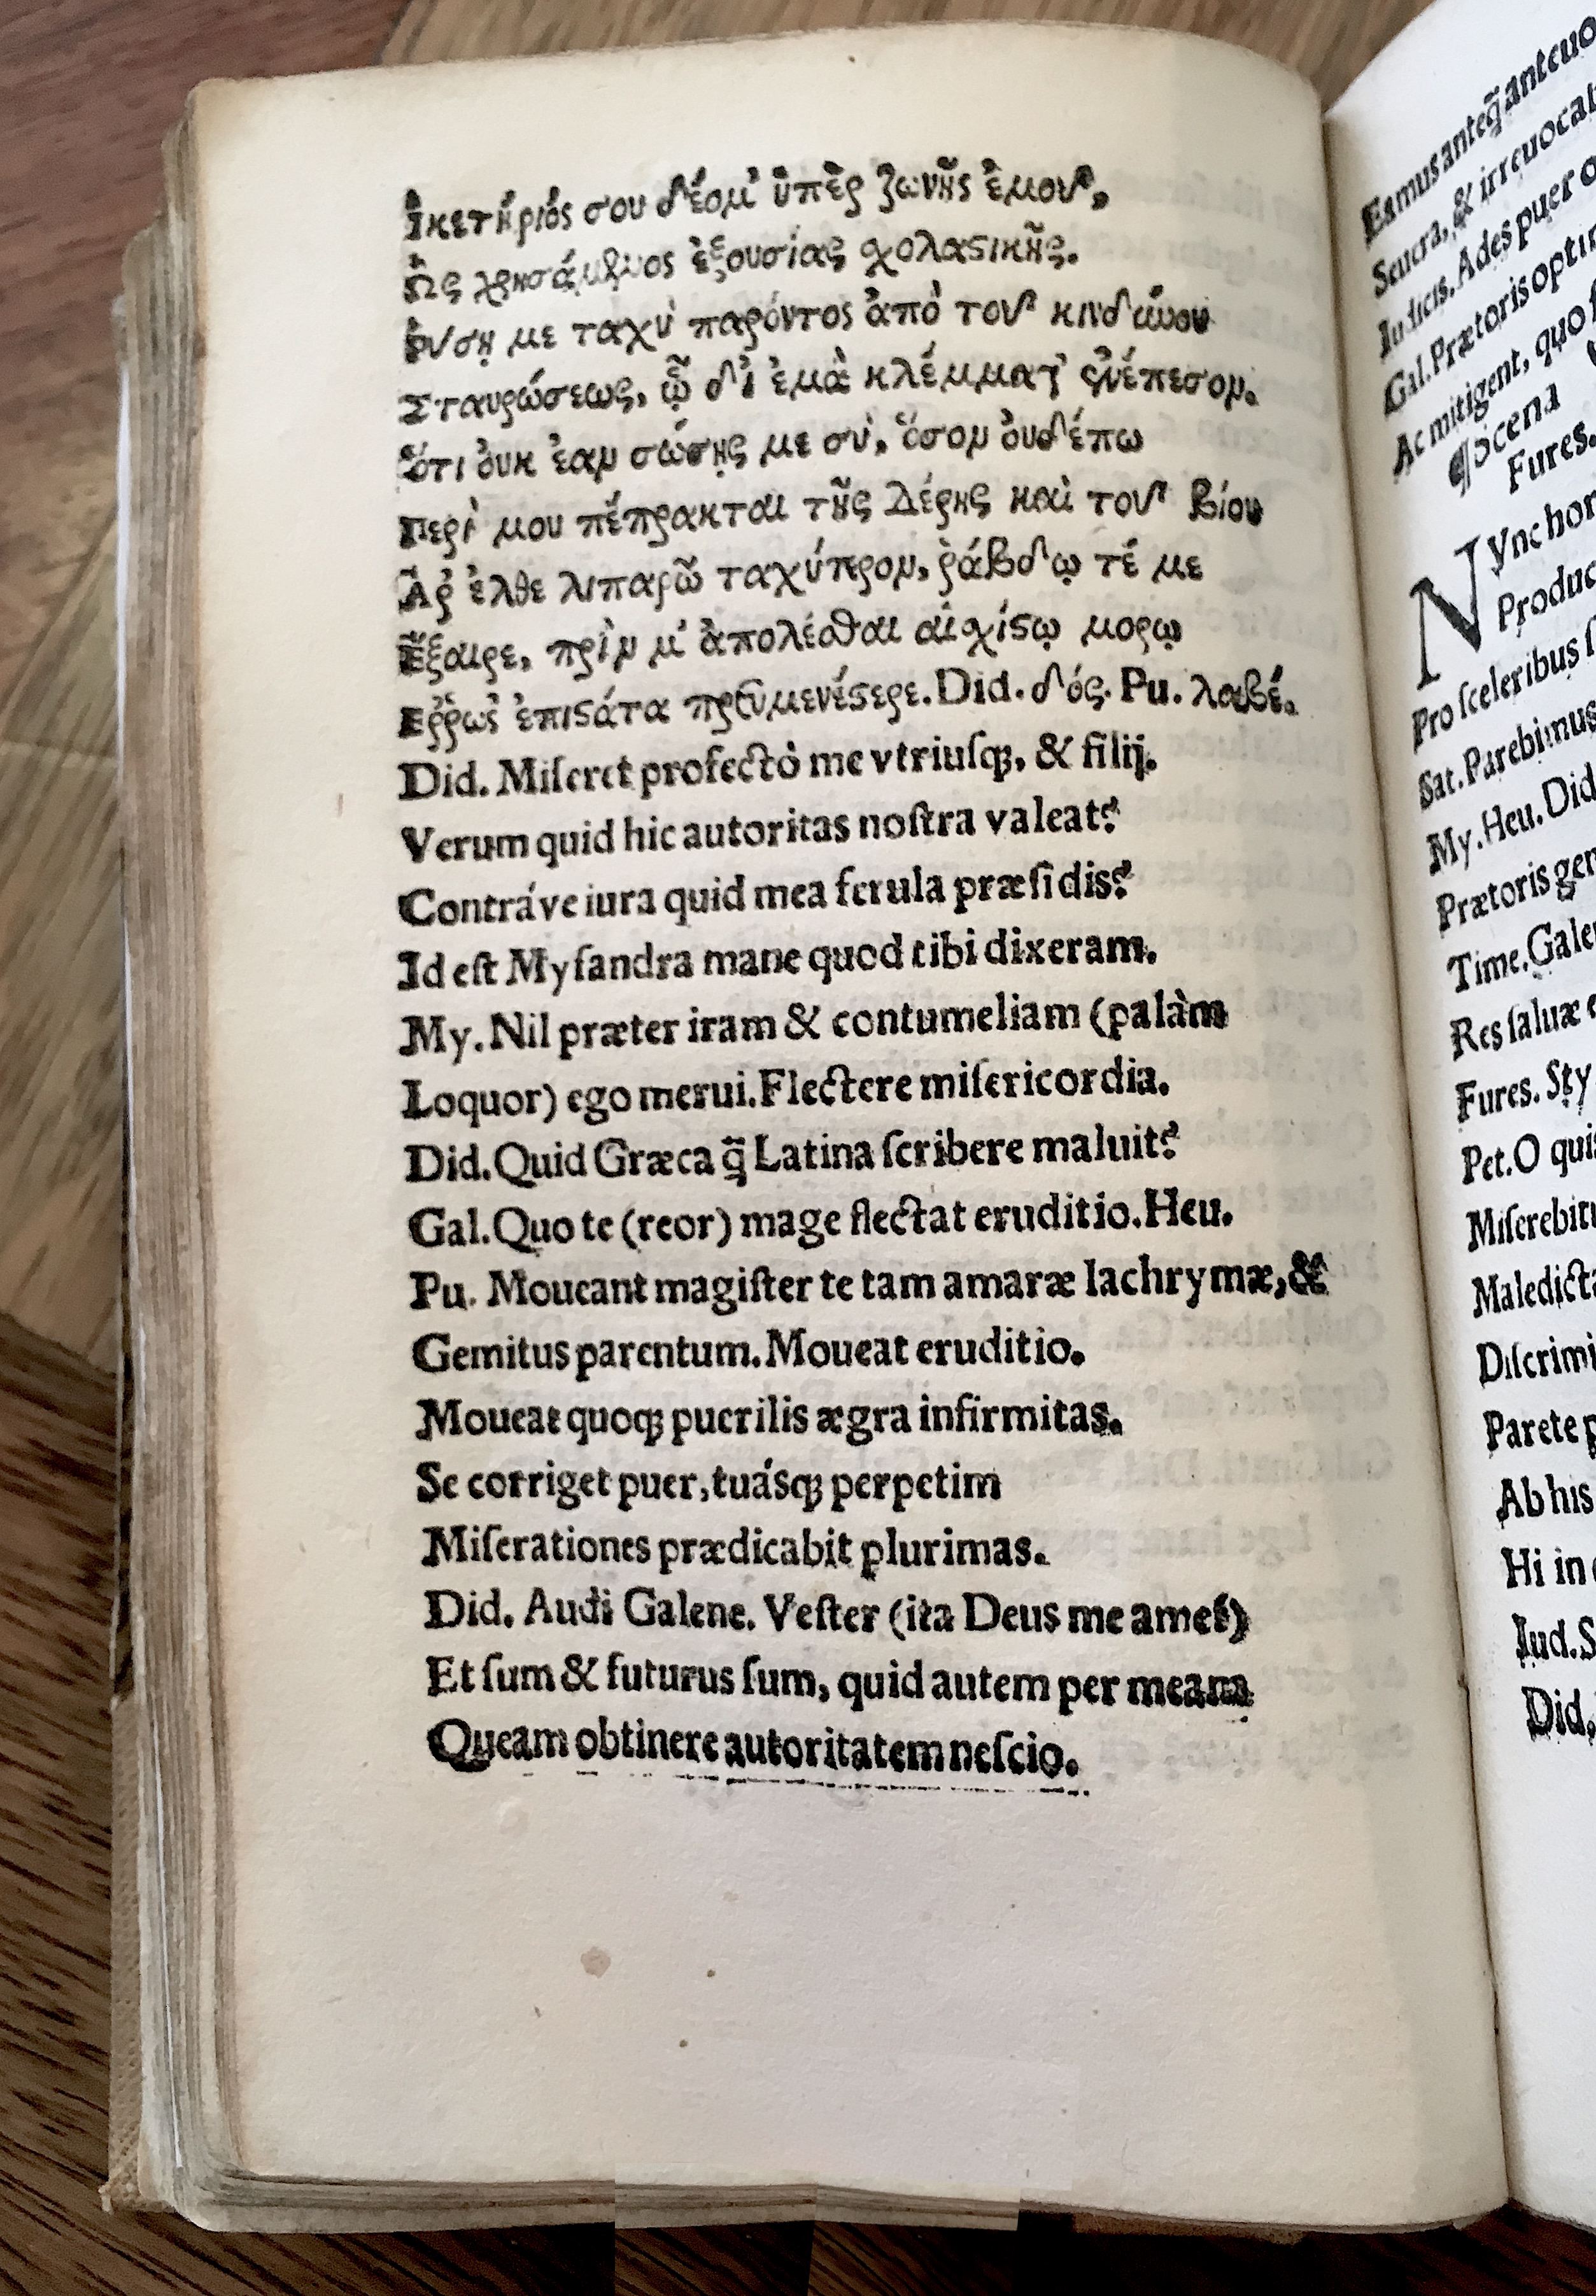 Ἱκετήριός σου δέομ' ὑπὲρ ζωνῆς ἐμοῦ,
Ὡς χρησάμενος ἐξουσίας χολαϛικῆς.
ῥύσῃ με ταχὺ παρόντος ἀπὸ τοῦ κινδύνου
Σταυρώσεως, ᾧ δι' ἐμὰ κλέμματ' ἐνέπεσον.
Ὅτι οὐκ ἐαν σώσῃς με σὺ, ὅσον οὐδέπω
Περὶ μου πέπρακται τῆς Δέρης καὶ τοῦ βίου
Ἀρ' ἐλθε λιπαρῶ ταχύτερον, ῥάβδῳ τέ με
Ἔξαιρε, πρὶν μ' ἀπολέσθαι αἰχίϛῳ μορῳ
Ερῥωσ' ἐπιϛάτα πρευμενέϛερε. Did. δός. Pu. λαβέ.
Did. Miſeret profectò me vtriuſq;, & filij.
Verum quid hic autoritas noſtra valeat?
Contráve iura quid mea ferula præſidis?
Id eſt Myſandra mane quod tibi dixeram.
My. Nil præter iram & contumeliam (palàm
Loquor) ego merui. Flectere miſericordia.
Did. Quid Græca q̃ Latina ſcribere maluit?
Gal. Quo te (reor) mage flectat eruditio. Heu.
Pu. Moueant magiſter te tam amaræ lachrymæ, &
Gemitus parentum. Moueat eruditio.
Moueat quoq; puerilis ægra infirmitas.
Se corriget puer, tuásq; perpetim
Miſerationes prædicabit plurimas.
Did. Audi Galene. Veſter (ita Deus me amet)
Et ſum & futurus ſum, quid autem per meam
Queam obtinere autoritatem neſcio.
Eamus anteq̃ ant
Seuera, & irreuocab
Iudicis. Ades puer
Gal. Prætoris
Ac mitigent, quo
¶Scena
Fures.
Nync hor
Produc
Pro ſceleribus
Sat. Parebimus
My. Heu. Did
Prætoris gen
Time. Gale
Res ſaluæ
Fures. Sty
Pet. O quis
Miſerebitu
Maledicta
Diſcrimi
Parete
Ab his
Hi in
Iud. S
Did.